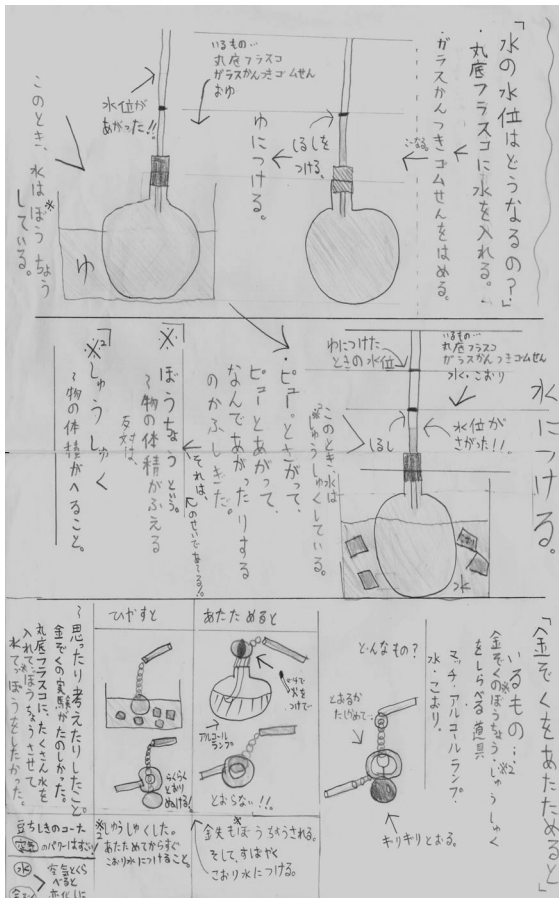 「水の水位はどうなるの？」
・丸底フラスコに水を入れる。
・ガラスかんつきゴムせんをはめる。
こうなる。
しるしを
つける。
ゆにつける。
いるもの…
丸底フラスコ
ガラスかんつきゴムせん
おゆ
水位が
あがった!!
ゆ
このとき、水はぼうちょう
※
している。
水につける。
いるもの…
丸底フラスコ
ガラスかんつきゴムせん
水・こおり
水位が
さがった!!
ゆにつけた
ときの水位
しるし
水
このとき、水は
※2しゅうしゅくしている。
・ピューっとさがって、
ピューとあがって、
なんであがったりする
のかふしぎだ。
それは、
のせいであ〜る!!
「※
ぼうちょうという。
〜物の体積がふえる
反対は、
「※2
しゅうしゅく
〜物の体積がへること。
「金ぞくをあたためると」
いるもの…
※2
金ぞくのぼうちょう・しゅうしゅく
をしらべる道具
マッチ・アルコールランプ・
水・こおり。
どんなもの？
とおるか
たしかめて…
キリキリとおる。
あたためると
火を
つけて…
アルコール
ランプ
とおらない!!
金ぞくもぼうちょうされる。
そして、すばやく
こおり水につける。
ひやすと
らくらく
とおり
ぬける!
※2
しゅうしゅくした。
あたためてからすぐ
こおり水につけること。
〜思ったり考えたりしたこと。
金ぞくの実験がたのしかった。
丸底フラスコに、たくさん水を
入れて、ぼうちょうさせて
水てっぽうをしたかった。
豆ちしきのコーナー
のパワーはすごい!
水
空気とくら
べると